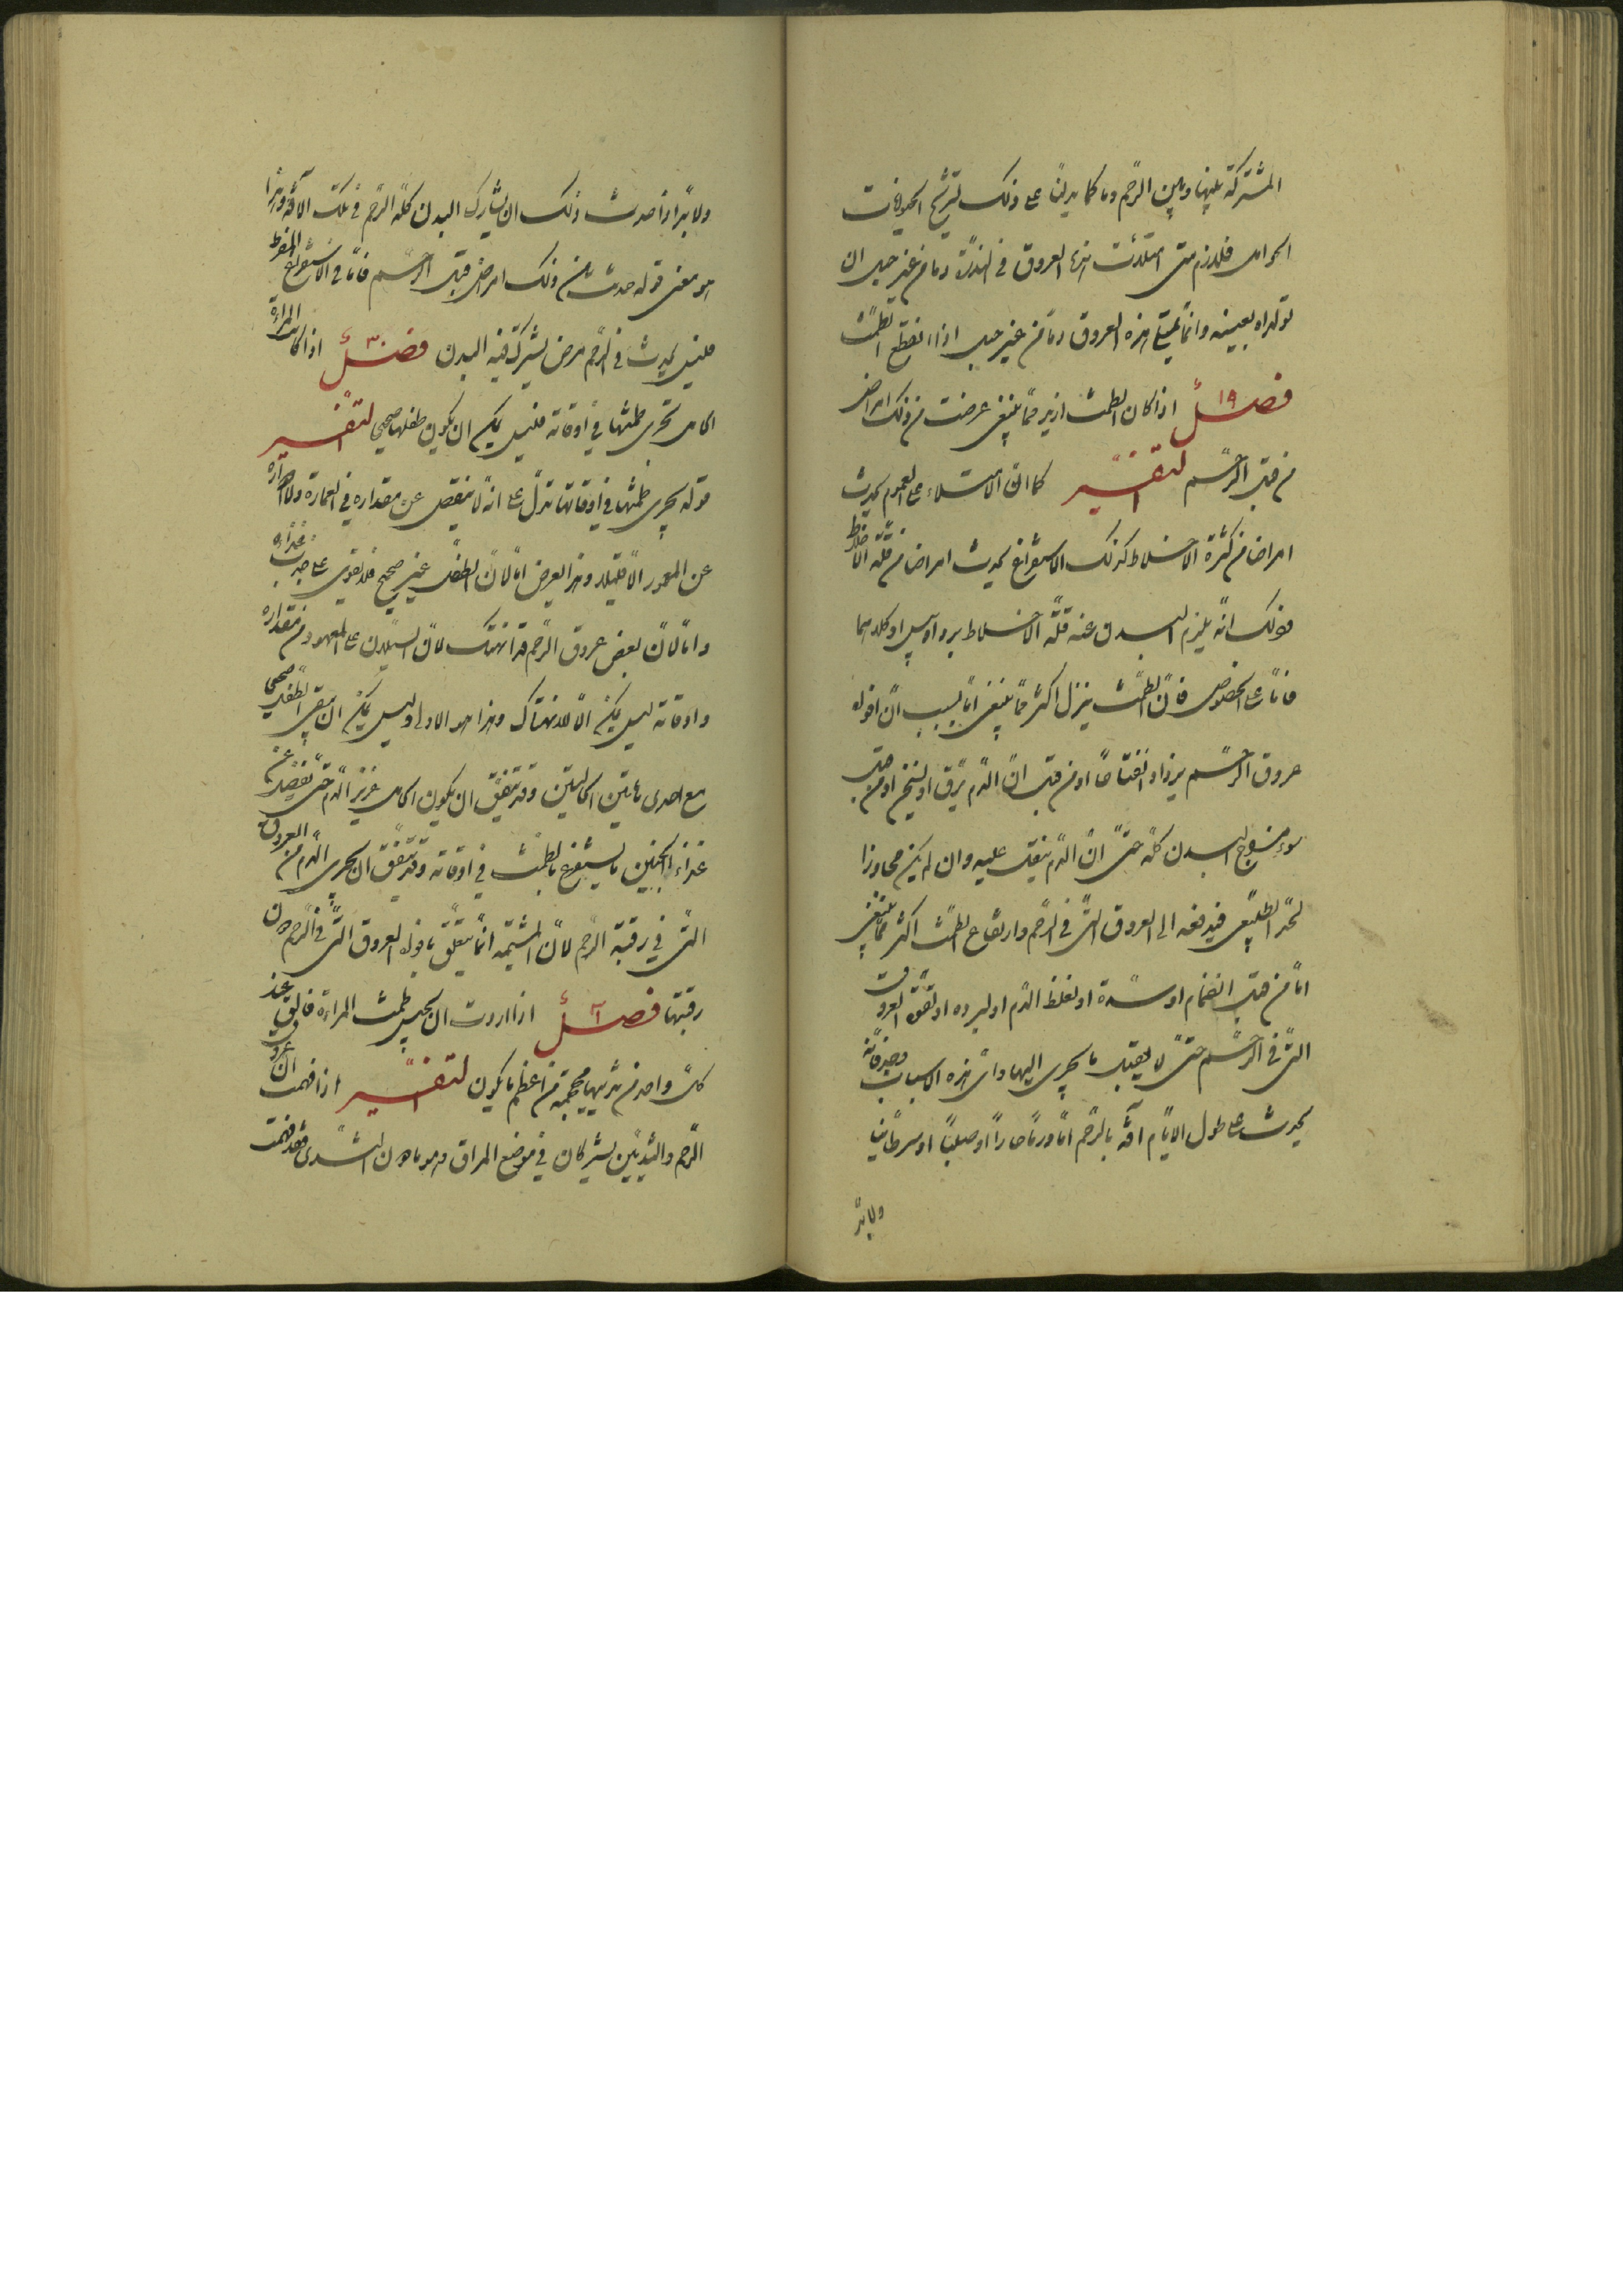 المشتركة بينها وبين الرحم وما كما يدلنا على ذلك تشريح الحيوانات
الحوامل فلا زم متى امتلأت هذه العروق في الثدي دما من غير حبل ان
تولداه بعينه وانما تمتلئ هذه العروق دما من غير حبل اذا انقطع الطمث
فصل ١٩ اذا كان الطمث ازيد مما ينبغي عرضت من ذلك امراض
من قبل الرحم التفسير كما ان الامتلاء على العموم يحدث
امراضا من كثرة الاخلاط كذلك الاستفراغ يحدث امراضا من قلة الاخلاط
وذلك انه يلزم البدن عنه قلة الاخلاط برد او يبس او كلاهما
فاما على الخصوص فان الطمث ينزل اكثر مما ينبغي اما بسبب ان افواه
عروق الرحم يزداد انفتاحا او من قبل ان الدم يرق او يسخن او من قبل
سوء مزاج البدن كله حتى ان الدم يثقل عليه وان لم يكن مجاوزا
لحد الطبيعي فيدفعه الى العروق التي في الرحم وارتفاع الطمث اكثر مما ينبغي
اما من قبل انضمام او سدة او لغلظ الدم او لبرده او العروق
التي في الرحم حتى لا يقبل ما يجري اليها واي هذه الاسباب وجد فانه
يحدث على طول الايام آفة بالرحم اما ورما حارا او صلبا او سرطانيا
ولا بد
ولا بد اذا حدث ذلك ان يشارك البدن كله الرحم في تلك الآفة وهذا
هو معنى قوله حدث من ذلك امراض من قبل الرحم فاما في الاستفراغ المفرط
فليس يحدث في الرحم مرض يشركه فيه البدن فصل ٢٠ اذا كانت المرأة
الحامل تجري طمثها في اوقاته فليس يمكن ان يكون طفلها صحيحا التفسير
قوله يجري طمثها في اوقاتها تدل على انه لا ينقص عن مقداره في العادة ولا
عن المعهود الا قليلا وهذا يعرض اما لان الطفل غير صحيح فلا يقوى على جذب غذائه
واما لان بعض عروق الرحم قد انهتك لان السيلان على المعهود من مقداره
واوقاته ليس يكن الا للانهتاك وهذا هو الاولى وليس يمكن ان يبقى الطفل صحيحا
مع احدى هاتين الحالتين وقد يتفق ان يكون الحامل غزيرة الدم حتى يفضل عن
غذاء الجنين ما يستفرغ بالطمث في اوقاته وقد يتفق ان يجري الدم من العروق
التي في رقبة الرحم لان المشيمة انما يتعلق بافواه العروق التي في الرحم دون
رقبتها فصل ٢١ اذا اردت ان تحبس طمث المرأة فالق عند
كل واحد من ثدييها محجمة من اعظم ما يكون التفسير اذا فهمت ان عروق
الرحم والثديين يشتركان في موضع المراق وهو ما دون الثدي فقد فهمت